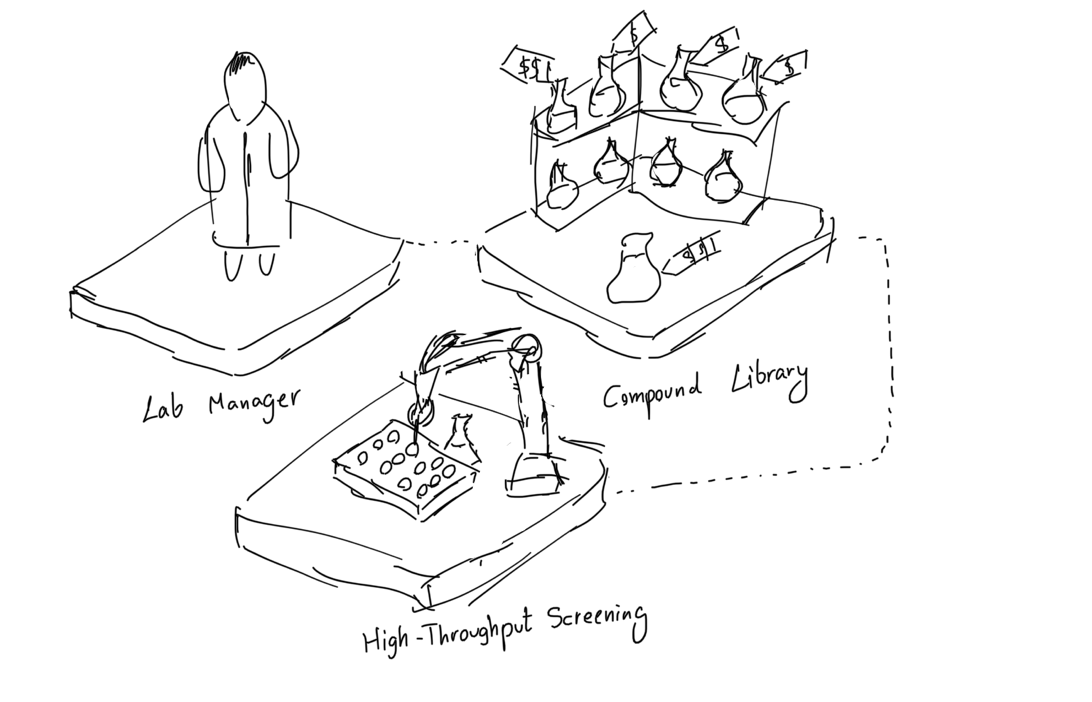 $$
$
$
$
$$
Lab Manager
Compound Library
High-Throughput Screening